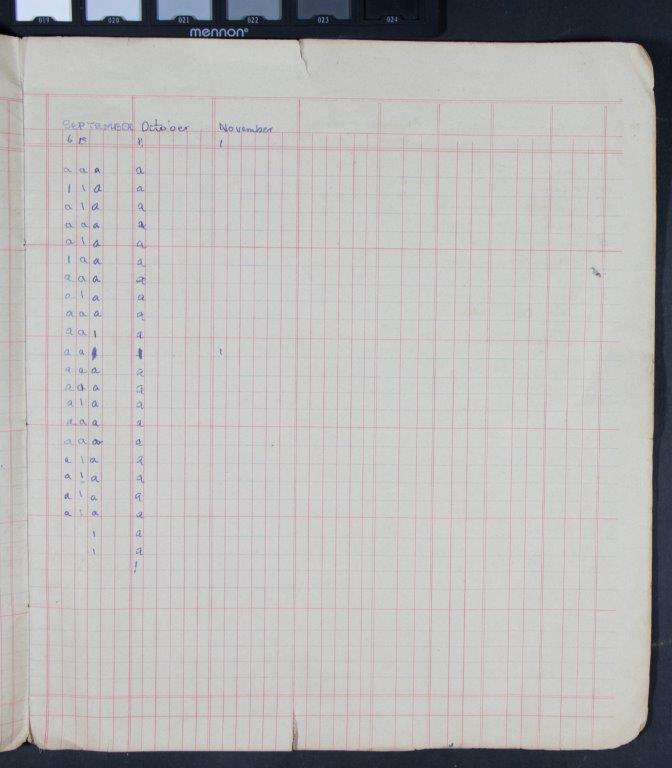 019 020 021 022 023 024
mennon®
SEPTEMBER October November
6 13 11 1
a a a a
1 1 a a
a 1 a a
a a a a
a 1 a a
1 a a a
a a a a
a 1 a a
a a a a
a a 1 a
a a 1 1 1
a a a a
a a a a
a 1 a a
a a a a
a a a a
a 1 a a
a 1 a a
a 1 a a
a 1 a a
1 a
1 a
1